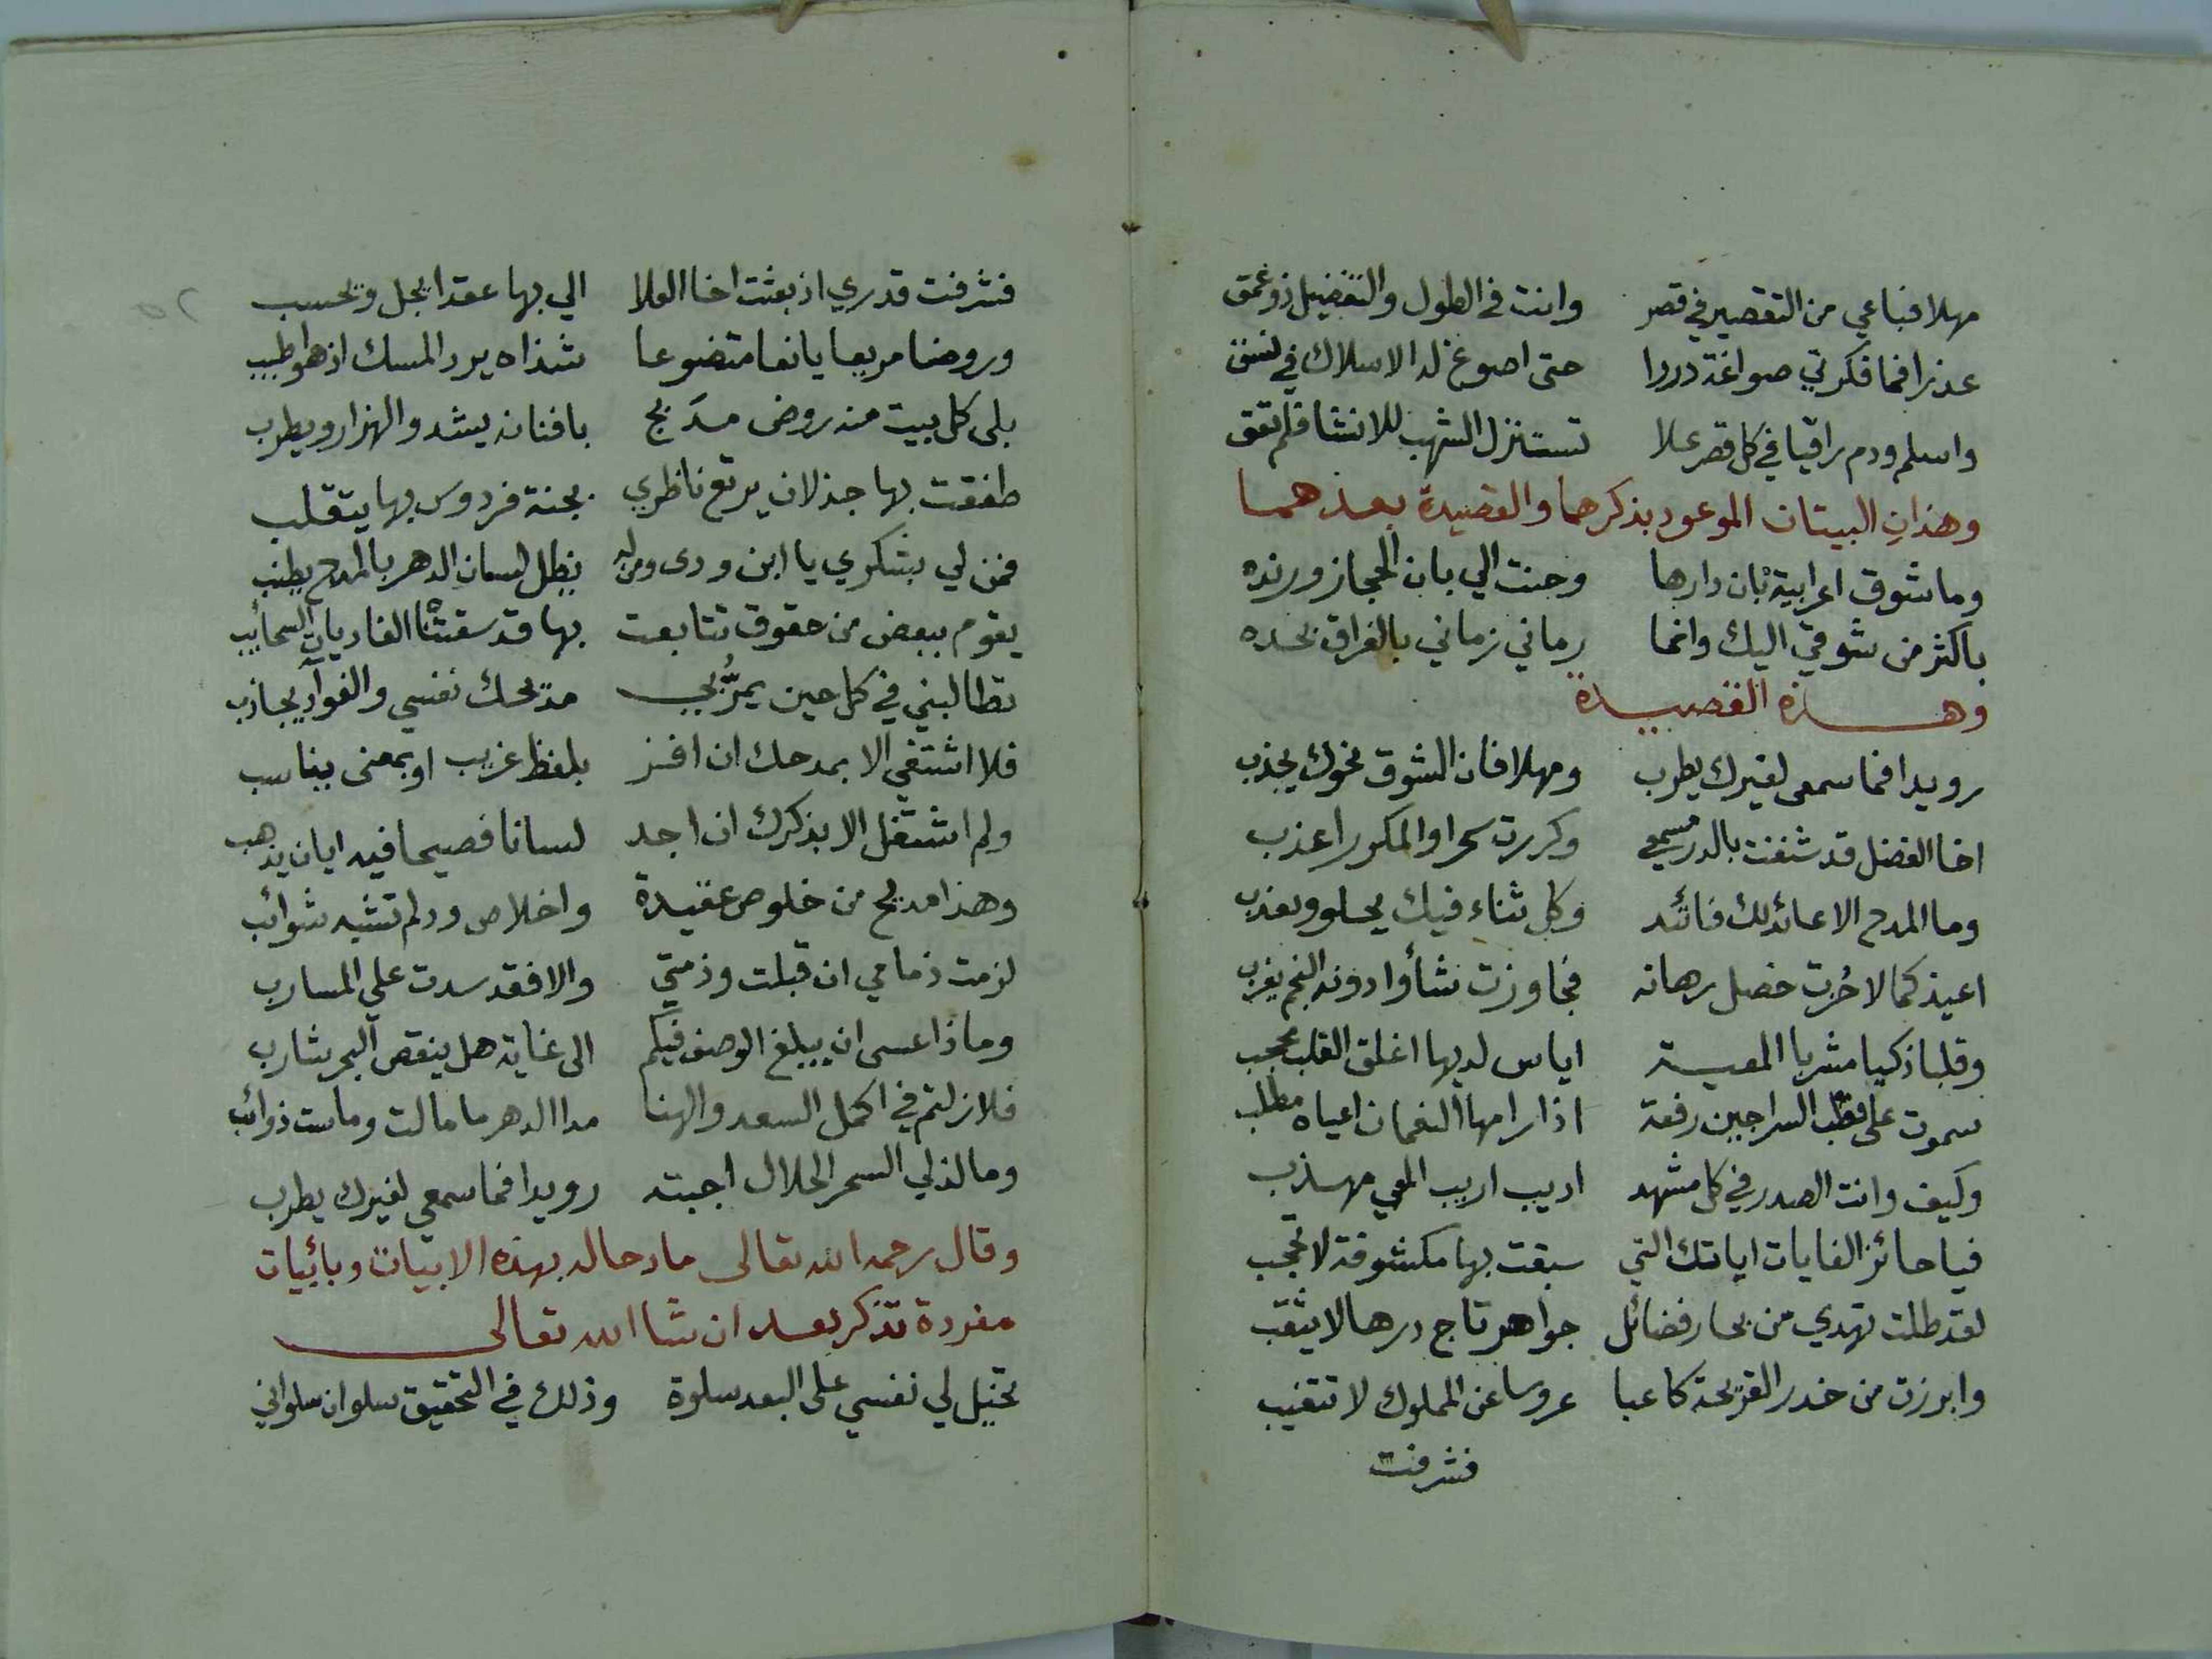 مهلا فباعي من التقصير في قصر وانت في الطول والتفضيل ذو عمق
عذرا فما فكرتي صواغة دررا حتى اصوغ لد الاسلاك في نسق
واسلم ودم راقيا في كل قصر علا تستنزل الشهب للانشا فلم تعق
وهذان البيتان الموعود بذكرهما والقصيدة بعدهما
وما شوق اعرابية بان دارها وحنت الي بان الحجاز ورنده
باكثر من شوقي اليك وانما رماني زماني بالفراق بحده
وهذه القصيدة
رويدا فما سمعى لغيرك يطرب ومهلا فان الشوق نحوك يجذب
اخا الفضل قد شنفت بالدر مسمعي وكررت سحرا والمكرر اعذب
وما المدح الا عائد لك فائد وكل ثناء فيك يحلو ويعذب
اعيذ كمالا حُزت خصل رهانه فجاوزت شأوا دونه النجم يغرب
وقلبا ذكيا مشربا المعية اياس لديها اغلق القلب معجب
سموت على قطب السراجين رفعة اذا رامها النعمان اعياه مطلب
وكيف وانت الصدر في كل مشهد اديب اريب المعي مهذب
فيا حائز الغايات اياتك التي سبقت بها مكشوفة لا تحجب
لقد طلت تهدي من بحار فضائل جواهر تاج درها لا يثقب
وابرزت من خدر القريحة كاعبا عروسا عن المملوك لا تتغيب
فشرفت
فشرفت قدري اذ بعثت اخا العلا الي بها عقدا يجل ويحسب
وروضا مريعا يانعا متضوعا شذاه يرد المسك اذ هو اطيب
بلى كل بيت منه روض مدَبج بافنانه يشدو الهزار ويطرب
طفقت بها جذلان يرتع ناظري بجنة فردوس بها يتقلب
فمن لي بشكري يا ابن ودى ومن له يظل لسان الدهر بالمدح يطنب
يقوم ببعض من حقوق تتابعت بها قد سقتنا الغاديات السحائب
تطالبني في كل حين يمرُّ بي مديحك نفسي والفوآد يجاذب
فلا اشتفي الا بمدحك ان افز بلفظ غريب او بمعنى يناسب
ولم اشتغل الا بذكرك ان اجد لسانا فصيحا فيه ايان يذهب
وهذا مديح من خلوص عقيدة واخلاص ود لم تشبه شوائب
لزمت ذمامي ان قبلت وذمتي والا فقد سدت علي المسارب
وماذا عسى ان يبلغ الوصف فيكم الى غاية هل ينقص البحر شارب
فلا زلتم في اكمل السعد والهنا مدا الدهر ما مالت وماست ذوائب
وما لذ لي السحر الحلال اجبته رويدا فما سمعي لغيرك يطرب
وقال رحمه الله تعالى مادحا له بهذه الابيات وبابيات
مفردة تذكر بعد ان شا الله تعالى
تخيل لي نفسي على البعد سلوة وذلك في التحقيق سلوان سلواني